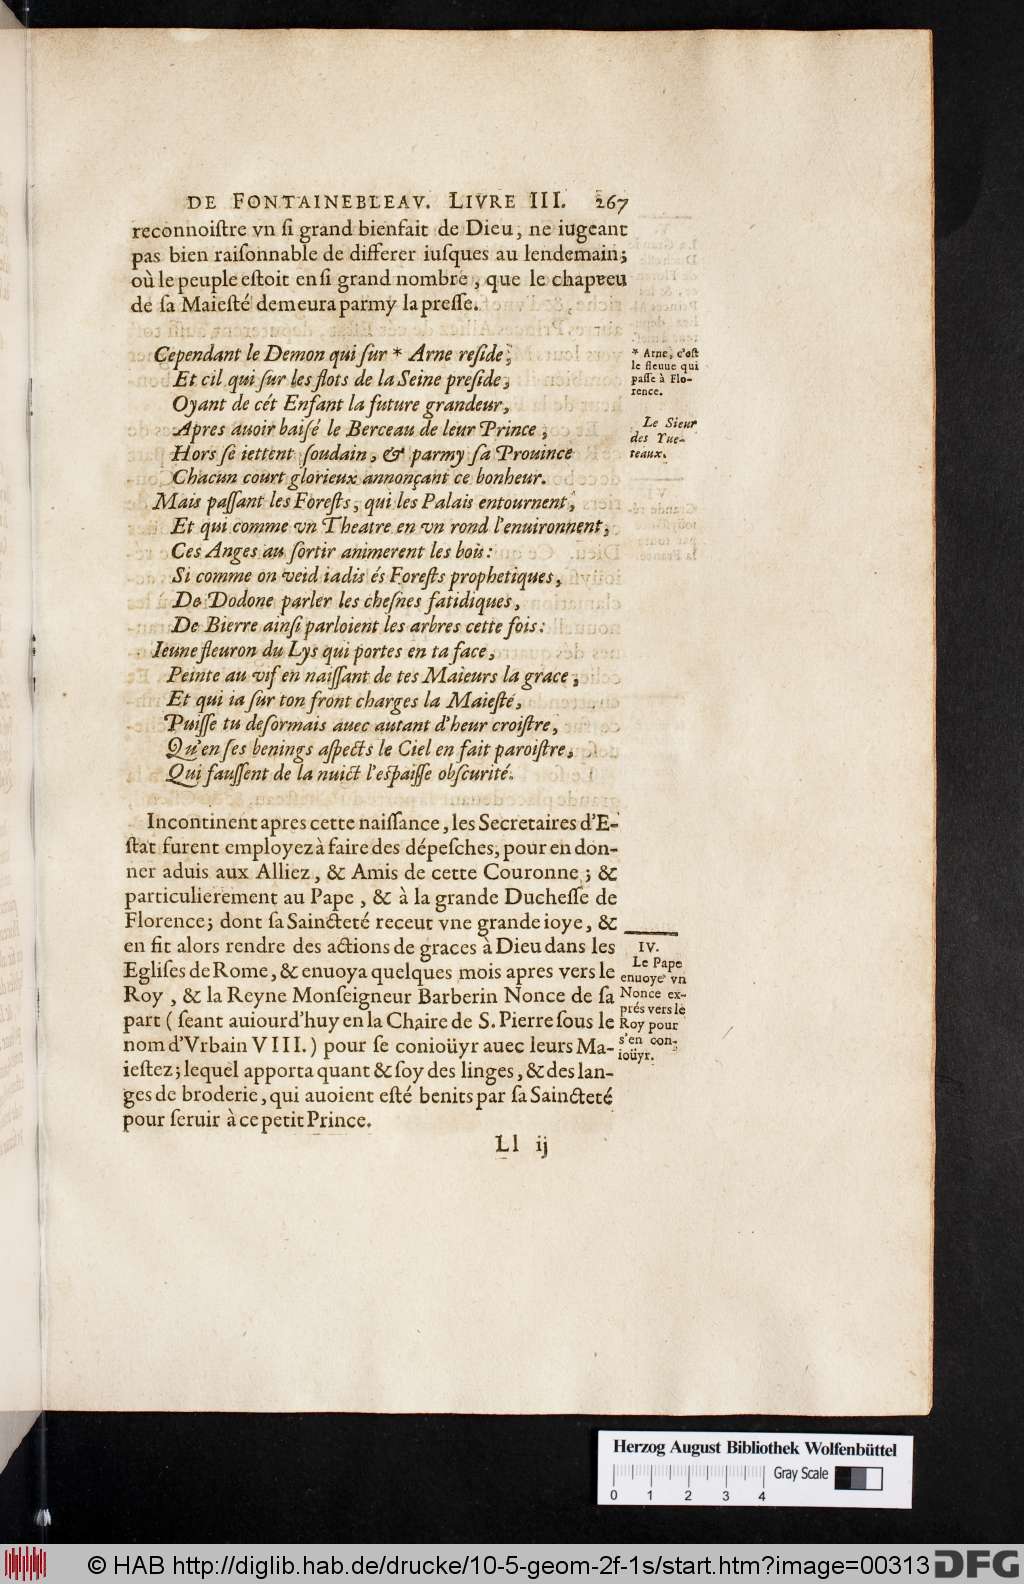 DE FONTAINEBLEAV. LIVRE III. 267
reconnoiſtre vn ſi grand bienfait de Dieu, ne iugeant
pas bien raiſonnable de differer iuſques au lendemain;
où le peuple eſtoit en ſi grand nombre, que le chapeeu
de ſa Maieſté demeura parmy la preſſe.
Cependant le Demon qui ſur * Arne reſide,
Et cil qui ſur les flots de la Seine preſide,
Oyant de cét Enfant la future grandeur,
Apres auoir baiſé le Berceau de leur Prince,
Hors ſe iettent ſoudain, & parmy ſa Prouince
Chacun court glorieux annonçant ce bonheur.
Mais paſſant les Foreſts, qui les Palais entournent,
Et qui comme vn Theatre en vn rond l'enuironnent,
Ces Anges au ſortir animerent les bois:
Si comme on veid iadis és Foreſts prophetiques,
De Dodone parler les cheſnes fatidiques,
De Bierre ainſi parloient les arbres cette fois:
Ieune fleuron du Lys qui portes en ta face,
Peinte au vif en naiſſant de tes Maieurs la grace,
Et qui ia ſur ton front charges la Maieſté,
Puiſſe tu deſormais auec autant d'heur croiſtre,
Qu'en ſes benings aſpects le Ciel en fait paroiſtre,
Qui fauſſent de la nuict l'eſpaiſſe obſcurité.
* Arne, c'eſt
le fleuue qui
paſſe à Flo-
rence.
Le Sieur
des Yue-
teaux.
Incontinent apres cette naiſſance, les Secretaires d'E-
ſtat furent employez à faire des dépeſches, pour en don-
ner aduis aux Alliez, & Amis de cette Couronne; &
particulierement au Pape, & à la grande Ducheſſe de
Florence; dont ſa Saincteté receut vne grande ioye, &
en fit alors rendre des actions de graces à Dieu dans les
Egliſes de Rome, & enuoya quelques mois apres vers le
Roy, & la Reyne Monſeigneur Barberin Nonce de ſa
part (ſeant auiourd'huy en la Chaire de S. Pierre ſous le
nom d'Vrbain VIII.) pour ſe conioüyr auec leurs Ma-
ieſtez; lequel apporta quant & ſoy des linges, & des lan-
ges de broderie, qui auoient eſté benits par ſa Saincteté
pour ſeruir à ce petit Prince.
IV.
Le Pape
enuoye vn
Nonce ex-
prés vers le
Roy pour
s'en con-
ioüyr.
Ll ij
Herzog August Bibliothek Wolfenbüttel
Gray Scale
0 1 2 3 4
© HAB http://diglib.hab.de/drucke/10-5-geom-2f-1s/start.htm?image=00313
DFG